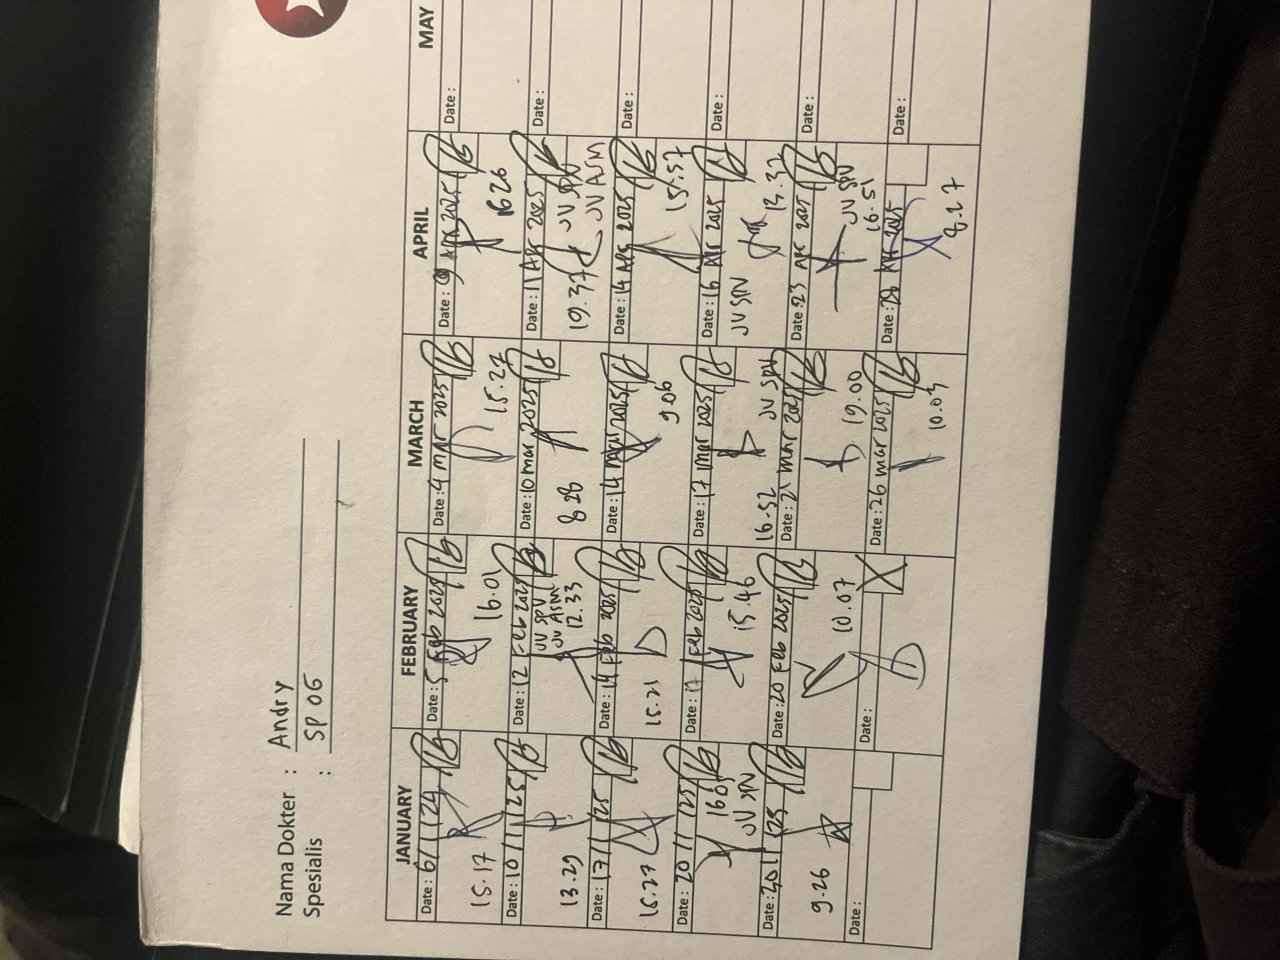 Nama Dokter : Andry
Spesialis : SP OG
JANUARY FEBRUARY MARCH APRIL MAY
Date: 6/1/24 Date: 5 Feb 2025 Date: 4 Mar 2025 Date: 9 Apr 2025 Date:
15.17 16.01 15.27 16 26
Date: 10/1/25 Date: 12 Feb 2025 Date: 10 Mar 2025 Date: 11 Apr 2025 Date:
JV SPV JV SPV
JV ASM JV ASM
13.29 12.33 8.26 10.37
Date: 17/1/25 Date: 14 Feb 2025 Date: 14 Mar 2025 Date: 14 Apr 2025 Date:
15.27 15.21 9.06 15.57
Date: 20/1/25 Date: 17 Feb 2025 Date: 17 Mar 2025 Date: 16 Apr 2025 Date:
15.46 16.52 JV SPV JV SPV 13.37
JV SPV
Date: Date: 20 Feb 2025 Date: 21 Mar 2025 Date: 23 Apr 2025 Date:
JV SPV
9.26 10.07 19.00 16.51
Date: Date: Date: 26 Mar 2025 Date: 28 Apr 2025 Date:
10.03 8.27